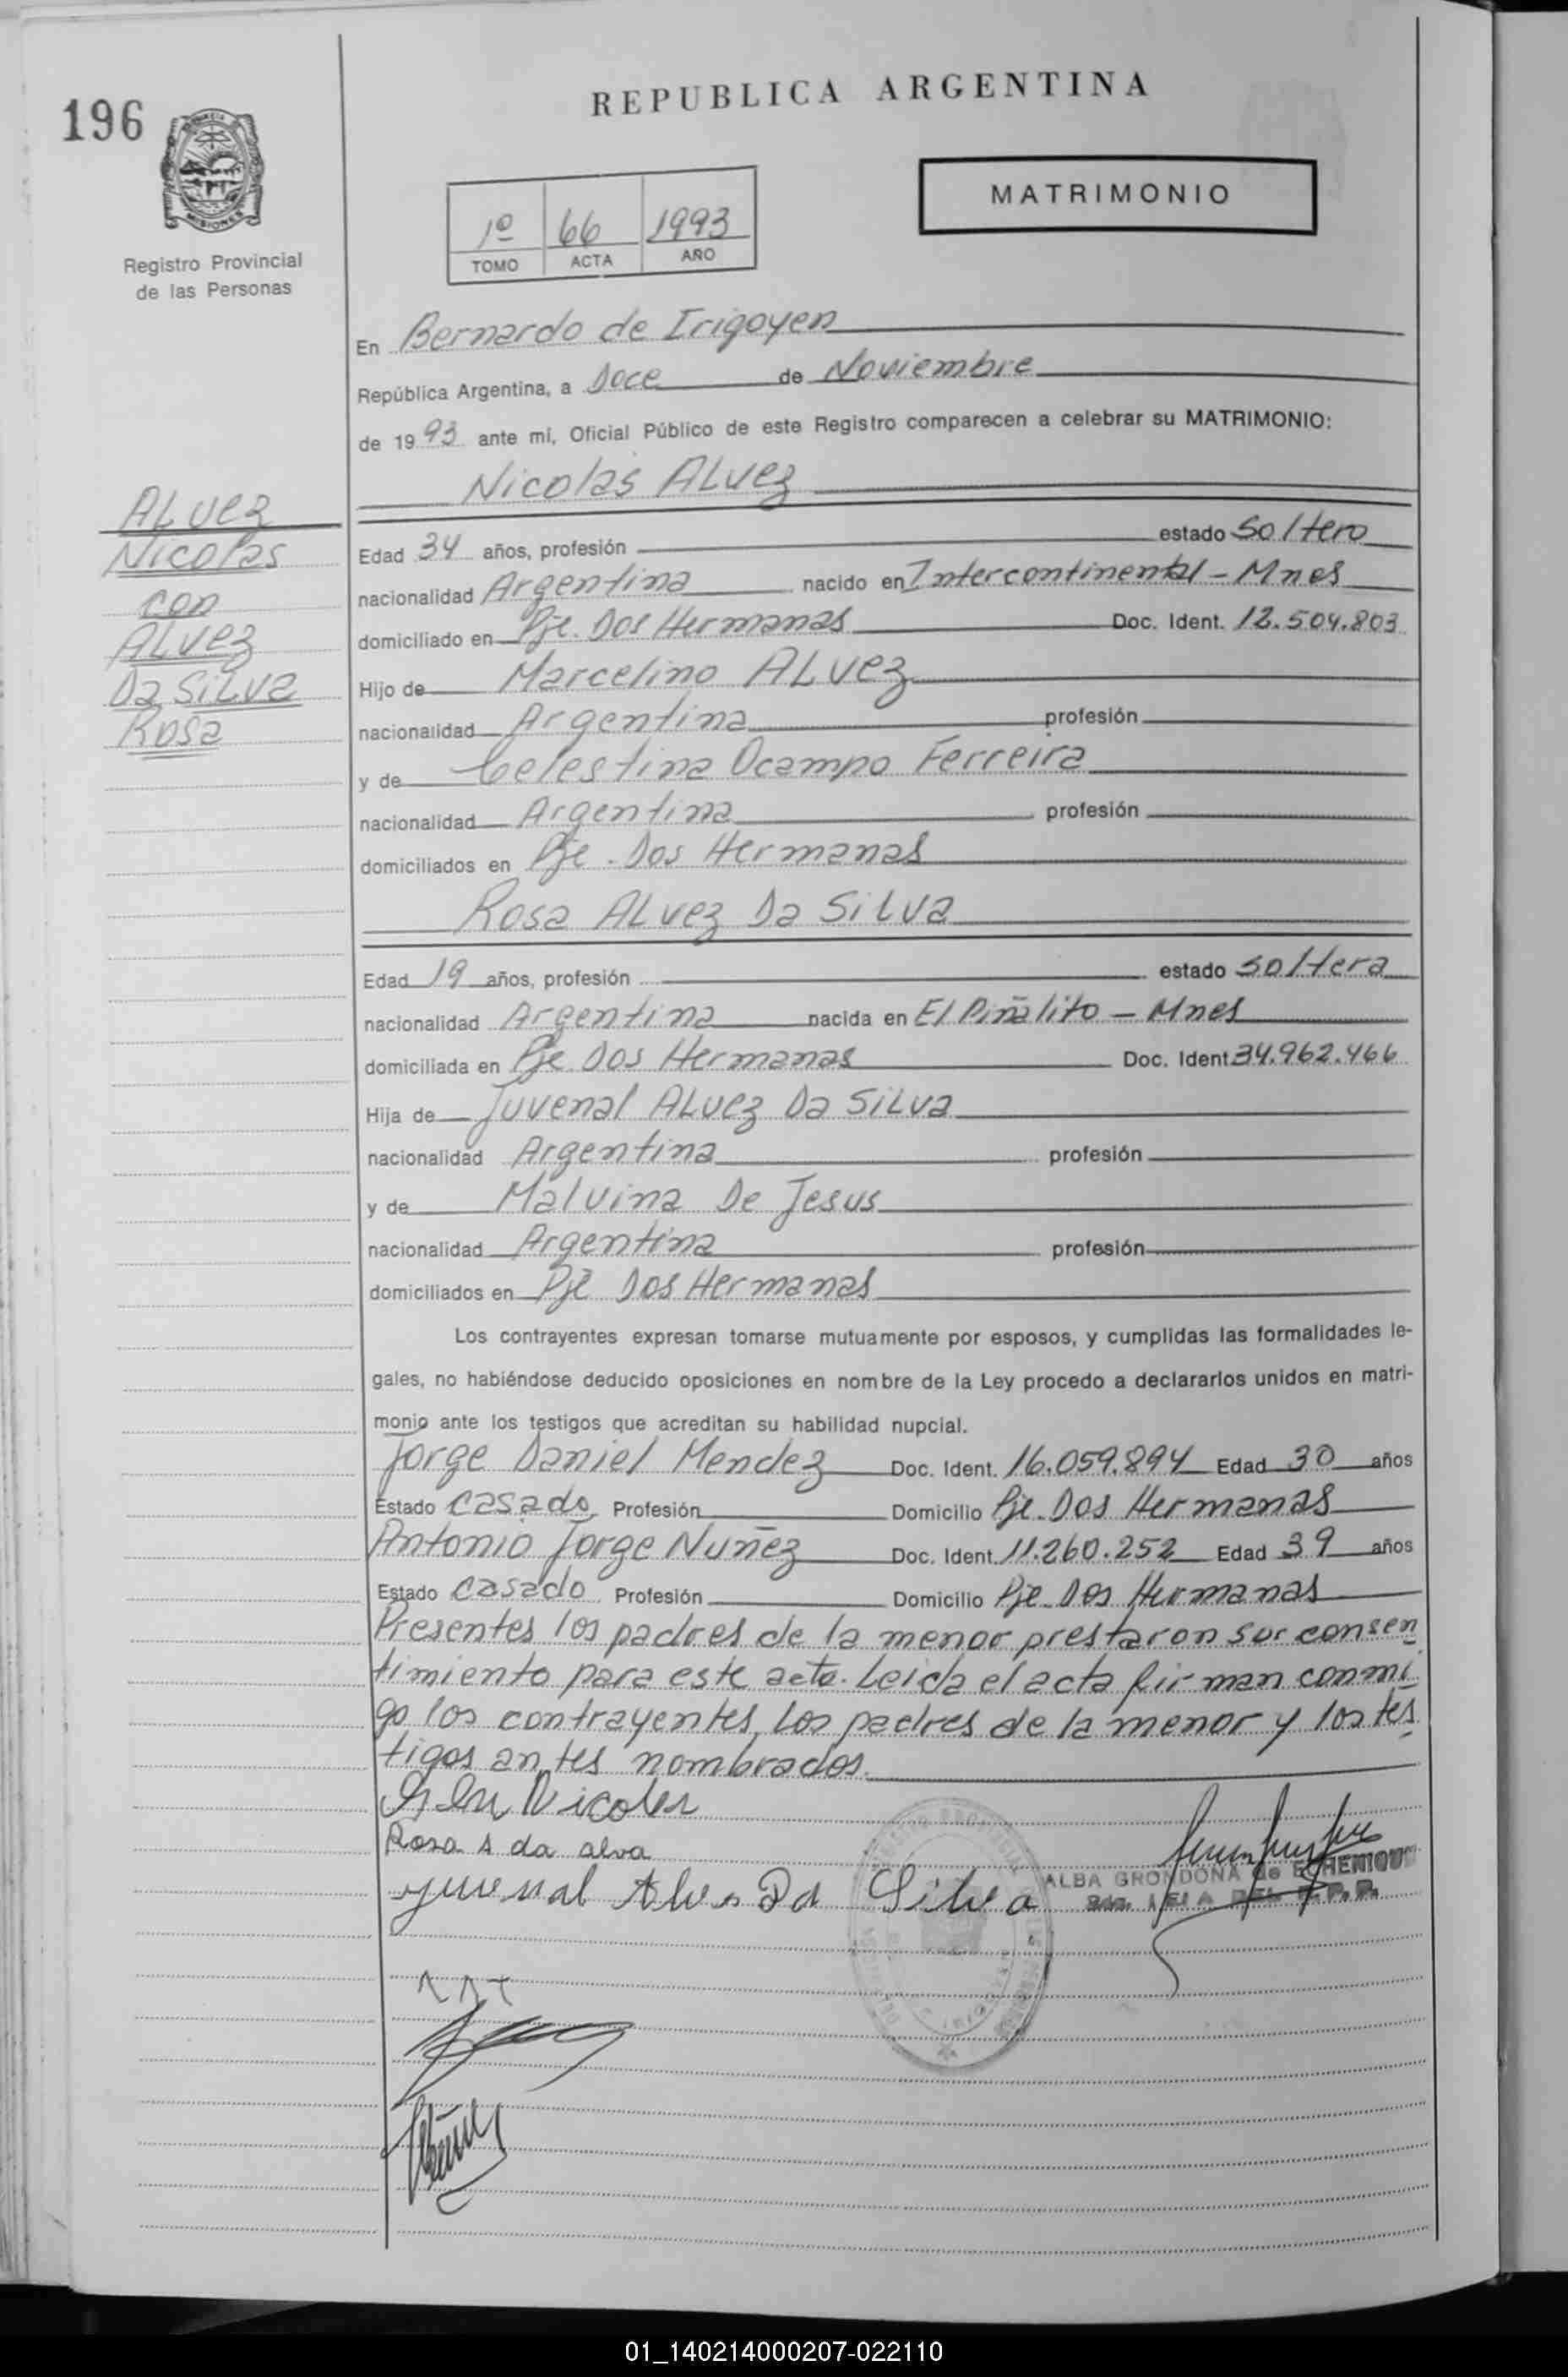 196
REPUBLICA ARGENTINA
MATRIMONIO
MISIONES
Registro Provincial
de las Personas
1º 66 1993
TOMO ACTA AÑO
En Bernardo de Irigoyen
República Argentina, a Doce de Noviembre
de 1993 ante mí, Oficial Público de este Registro comparecen a celebrar su MATRIMONIO:
Nicolas ALvez
ALvez
Nicolas
con
ALvez
Da SiLva
Rosa
Edad 34 años, profesión estado Soltero
nacionalidad Argentina nacido en Intercontinental - Mnes
domiciliado en Pje. Dos Hermanas Doc. Ident. 12.504.803
Hijo de Marcelino ALvez
nacionalidad Argentina profesión
y de Celestina Ocampo Ferreira
nacionalidad Argentina profesión
domiciliados en Pje. Dos Hermanas
Rosa ALvez Da SiLva
Edad 19 años, profesión estado soltera
nacionalidad Argentina nacida en El Piñalito - Mnes
domiciliada en Pje. Dos Hermanas Doc. Ident 34.962.466
Hija de Juvenal ALvez Da SiLva
nacionalidad Argentina profesión
y de Malvina De Jesus
nacionalidad Argentina profesión
domiciliados en Pje Dos Hermanas
Los contrayentes expresan tomarse mutuamente por esposos, y cumplidas las formalidades le-
gales, no habiéndose deducido oposiciones en nombre de la Ley procedo a declararlos unidos en matri-
monio ante los testigos que acreditan su habilidad nupcial.
Jorge Daniel Mendez Doc. Ident. 16.059.894 Edad 30 años
Estado casado Profesión Domicilio Pje. Dos Hermanas
Antonio Jorge Nuñez Doc. Ident. 11.260.252 Edad 39 años
Estado casado Profesión Domicilio Pje. Dos Hermanas
Presentes los padres de la menor prestaron su consen
timiento para este acto. Leida el acta firman conmi
go los contrayentes, los padres de la menor y los tes
tigos antes nombrados.
Nicolas
Rosa A da alva
juvenal Alves Da Silva
ALBA GRONDONA de ECHENIQUE
01_140214000207-022110